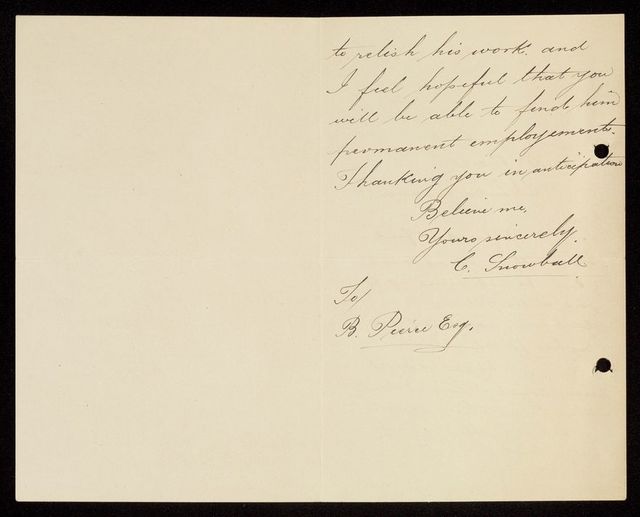 to relish his work. and
I feel hopeful that you
will be able to find him
permanent employement.
Thanking you in anticipation
Believe me,
Yours sincerely.
C. Snowball
To/
B. Peirce Esq.